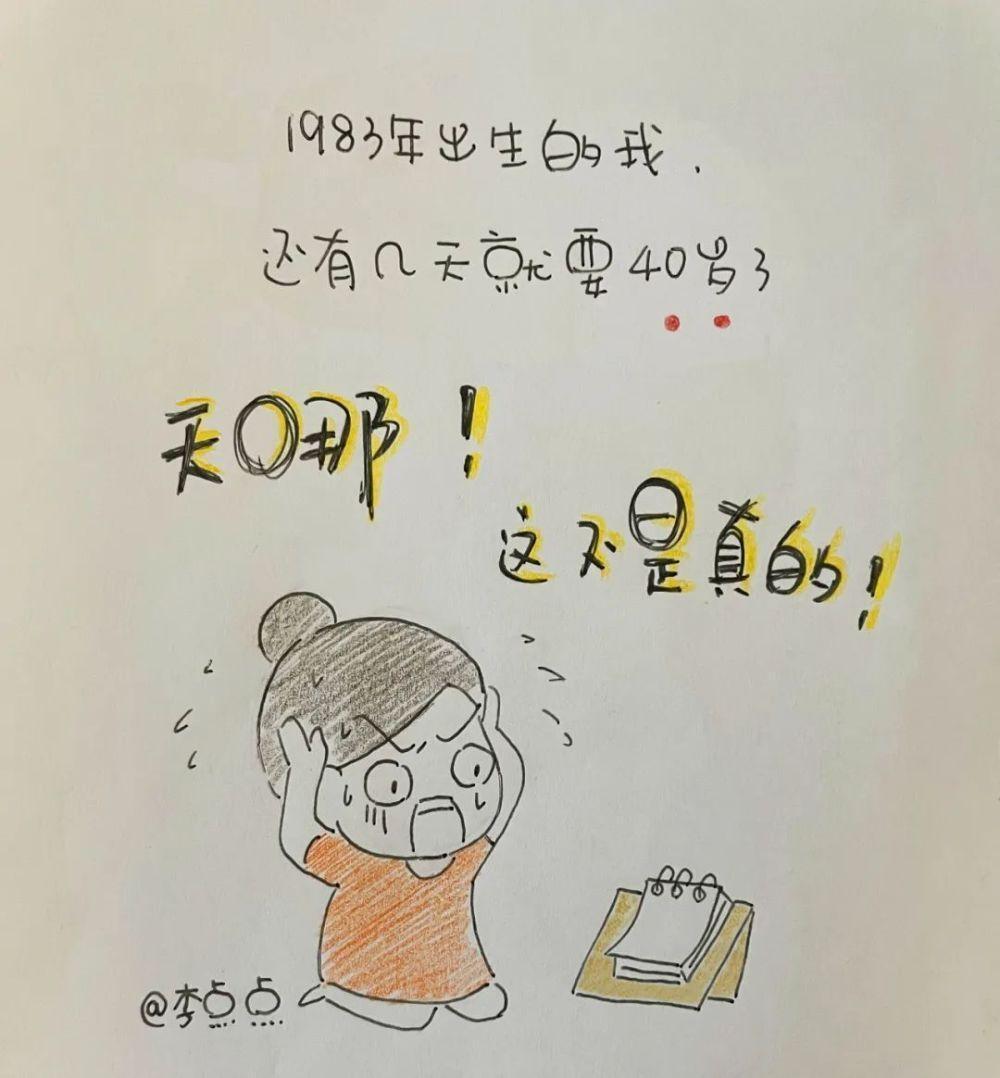 1983年出生的我.
还有几天就要40岁了
天哪!
这不是真的!
@李点点